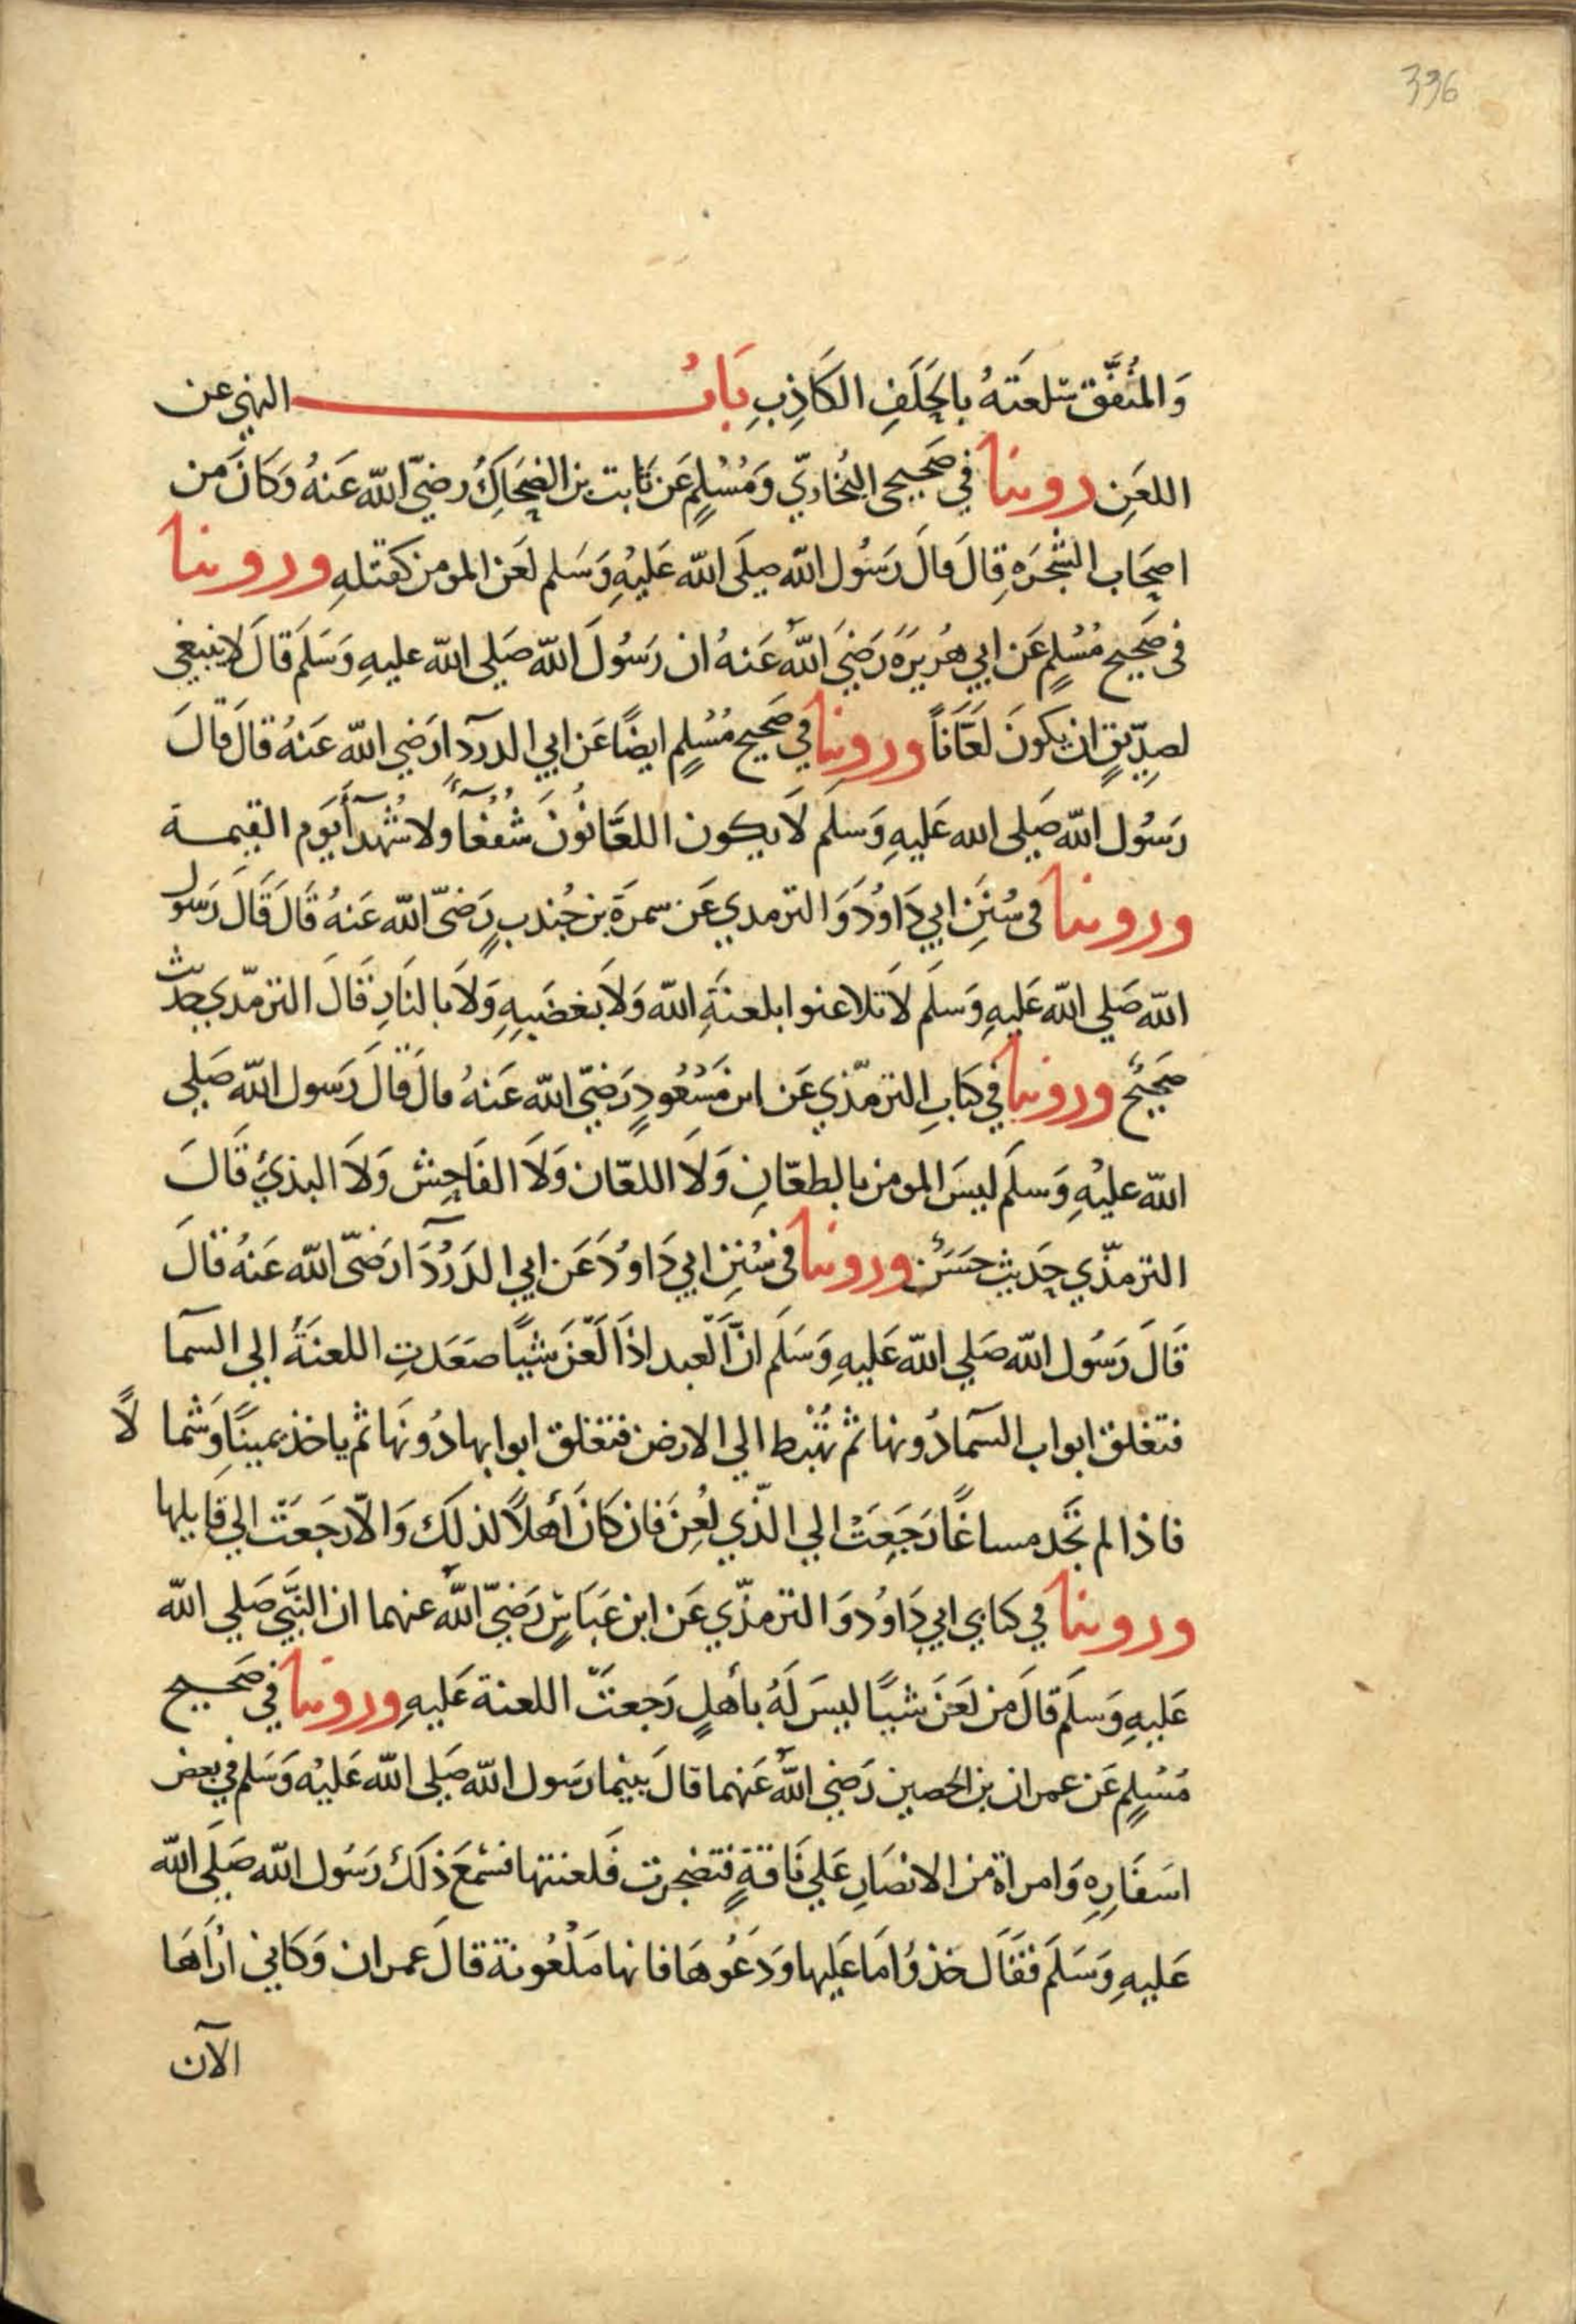 336
وَالمُنَفِّق سِلعَتَهُ بالحَلَفِ الكَاذِبِ بَابُ النهي عن
اللعَنِ روينا في صَحيحى البُخاريّ وَمُسْلِمٍ عَن ثابت بن الضحَاكُ رضيّ الله عَنهُ وَكَانَ من
اصحَاب الشجَرَةِ قالَ قالَ رَسُول الله صلَى الله عَليْهِ وَسَلم لَعَن المومن كقتلهِ وروينا
فى صَحِيح مُسْلِمٍ عَن ابي هُرَيرَةَ رَضيَ اللهُ عَنهُ ان رَسُولَ الله صَلي الله عليهِ وَسَلَم قالَ لا ينبغي
لصِدّيقٍ ان يكونَ لعَّانًا وروينا في صَحيح مُسْلِمٍ ايضًا عَن ابي الدردآ ارَضي الله عَنهُ قالَ قالَ
رَسُول الله صَلى الله عَليهِ وَسَلم لَا يكون اللعَّانُونَ شُفعآءً ولا شُهدآءَ يَوم القيمـة
وروينا فى سُنَنِ ابي دَاوُدَ وَالترمدي عَن سمرَة بن جُندبٍ رَضيّ الله عَنهُ قَالَ قَالَ رَسُول
الله صَلي الله عَليهِ وَسلَم لَا تلاعنوا بلعنةِ الله وَلَا بغضَبِهِ وَلَا بالنَارِ قَالَ الترمّدي حديث
صَحيحٌ وروينا في كتابِ الترمّذي عَن ابن مَسْعُودٍ رَضيّ الله عَنهُ قالَ قالَ رَسول الله صَلي
الله عليْهِ وَسلَم ليسَ المومن بالطعّانِ وَلَا اللعّان وَلَا الفَاحِش وَلَا البذيُ قَالَ
الترمّذي حَديث حَسَنٌ وروينا فى سُنَنِ ابي دَاوُدَ عَن ابي الدَرْدَآ ارَضيّ الله عَنهُ قالَ
قَالَ رَسُول الله صَلي الله عَليهِ وَسَلَم انَّ العبد اذَا لَعَنَ شيًا صعَدتِ اللعنَةُ الي السمآ
فتغلق ابواب السمآ دُونها ثم تهْبُط الي الارض فتغلق ابوابها دُونَها ثم ياخذ يمينًا وَشمالًا
فاذا لم تَجَد مساغًا رَجَعَتْ الي الّذي لُعِنَ فان كَانَ أهلًا لذلكَ وَالّا رجَعَتْ الي قايلها
وروينا في كتابي ابي دَاوُدَ وَالترمذّي عَن ابن عَبَاسٍ رَضيّ اللهُ عنهما ان النَبيّ صَلي الله
عَليهِ وَسلَم قالَ من لعَنَ شيًا ليسَ لَهُ بأهلٍ رَجعتَ اللعنة عَليهِ وروينا في صَحـيح
مُسْلِمٍ عَن عمران بن الحصين رَضي اللهُ عَنهما قالَ بينما رَسول الله صَلي الله عَليْه وَسَلم في بعض
اسَفَارِهِ وَامراة من الانصَارِ عَلي نَاقةٍ فتضجرت فَلعنتها فسْمعَ ذلكَ رَسُول الله صَلَي الله
عَليهِ وَسَلَم فقَالَ خذوُا مَا عَليها وَدَعُوهَا فانها مَلْعُونة قالَ عمران وَكَاني ارُاهَا
الآن